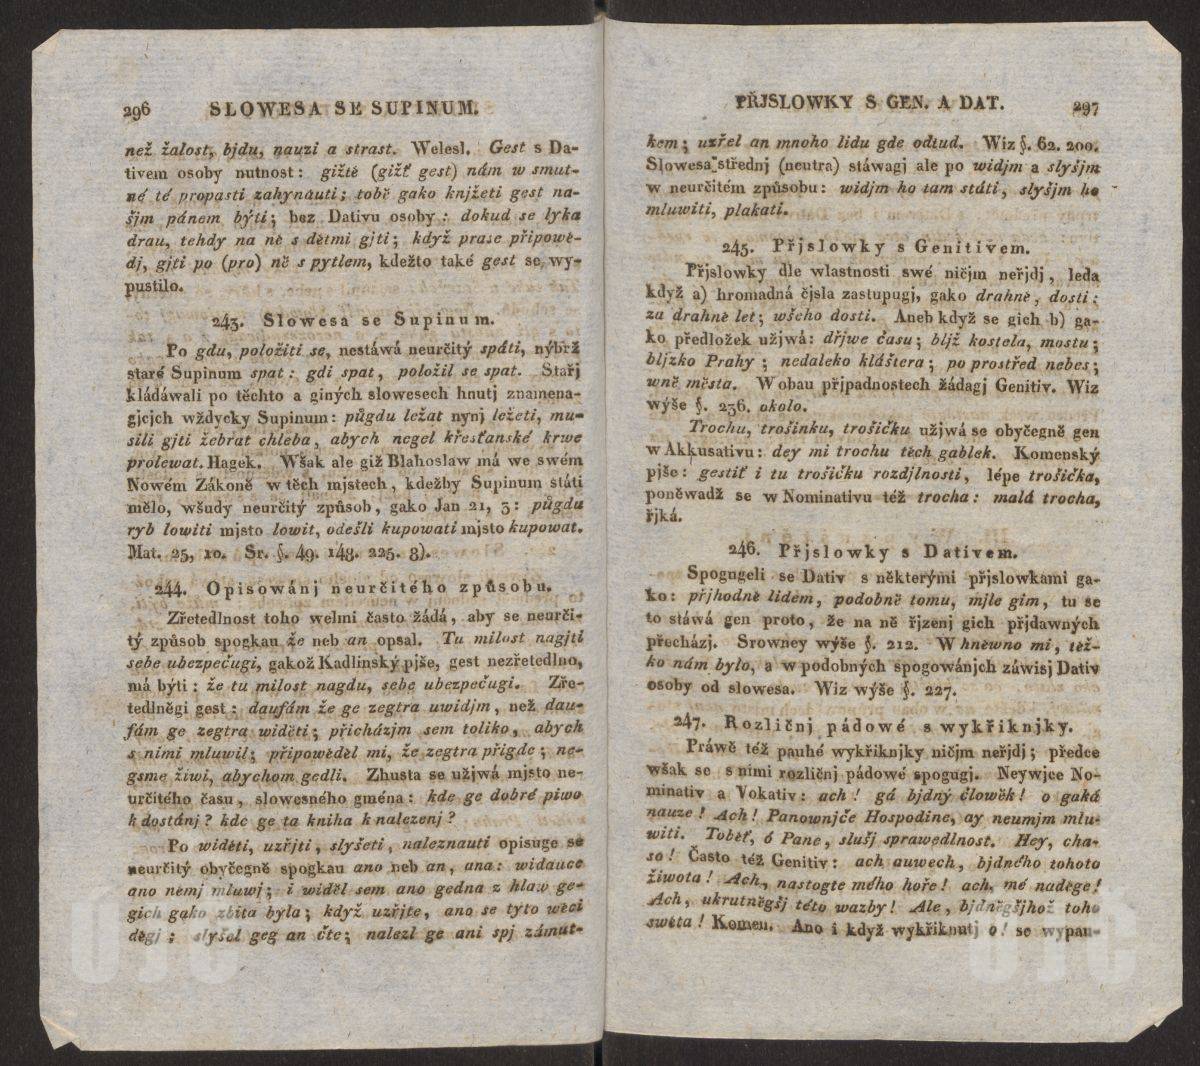 296 SLOWESA SE SUPINUM.
než žalost, bjdu, nauzi a strast. Welesl. Gest s Da-
tivem osoby nutnost: gižtě (gižť gest) nám w smut-
né té propasti zahynauti; tobě gako knjžeti gest na-
šjm pánem býti; bez Dativu osoby: dokud se lyka
drau, tehdy na ně s dětmi gjti; když prase připowě-
dj, gjti po (pro) ně s pytlem, kdežto také gest se wy-
pustilo.
243. Slowesa se Supinum.
Po gdu, položiti se, nestáwá neurčitý spáti, nýbrž
staré Supinum spat: gdi spat, položil se spat. Stařj
kládáwali po těchto a giných slowesech hnutj znamena-
gjcjch wždycky Supinum: půgdu ležat nynj ležeti, mu-
sili gjti žebrat chleba, abych negel křesťanské krwe
prolewat. Hagek. Wšak ale giž Blahoslaw má we swém
Nowém Zákoně w těch mjstech, kdežby Supinum státi
mělo, wšudy neurčitý způsob, gako Jan 21, 3: půgdu
ryb lowiti mjsto lowit, odešli kupowati mjsto kupowat.
Mat. 25, 10. Sr. §. 49. 148. 225. 8).
244. Opisowánj neurčitého způsobu.
Zřetedlnost toho welmi často žádá, aby se neurči-
tý způsob spogkau že neb an opsal. Tu milost nagjti
sebe ubezpečugi, gakož Kadlinský pjše, gest nezřetedlno,
má býti: že tu milost nagdu, sebe ubezpečugi. Zře-
tedlněgi gest: daufám že ge zegtra uwidjm, než dau-
fám ge zegtra widěti; přicházjm sem toliko, abych
s nimi mluwil; připowěděl mi, že zegtra přigde; ne-
gsme žiwi, abychom gedli. Zhusta se užjwá mjsto ne-
určitého času, slowesného gména: kde ge dobré piwo
k dostánj? kde ge ta kniha k nalezenj?
Po widěti, uzřjti, slyšeti, naleznauti opisuge se
neurčitý obyčegně spogkau ano neb an, ana: widauce
ano němj mluwj; i widěl sem ano gedna z hlaw ge-
gich gako zbita byla; když uzřjte, ano se tyto wěci
děgj; slyšel geg an čte; nalezl ge ani spj zámut-
PŘJSLOWKY S GEN. A DAT. 297
kem; uzřel an mnoho lidu gde odtud. Wiz §. 62. 200.
Slowesa střednj (neutra) stáwagj ale po widjm a slyšjm
w neurčitém způsobu: widjm ho tam státi, slyšjm ho
mluwiti, plakati.
245. Přjslowky s Genitivem.
Přjslowky dle wlastnosti swé ničjm neřjdj, leda
když a) hromadná čjsla zastupugj, gako drahně, dosti:
za drahně let; wšeho dosti. Aneb když se gich b) ga-
ko předložek užjwá: dřjwe času; bljž kostela, mostu;
bljzko Prahy; nedaleko kláštera; po prostřed nebes;
wně města. W obau přjpadnostech žádagj Genitiv. Wiz
wýše §. 236. okolo.
Trochu, trošinku, trošičku užjwá se obyčegně gen
w Akkusativu: dey mi trochu těch gablek. Komenský
pjše: gestiť i tu trošičku rozdjlnosti, lépe trošička,
poněwadž se w Nominativu též trocha: malá trocha,
řjká.
246. Přjslowky s Dativem.
Spogugeli se Dativ s některými přjslowkami ga-
ko: přjhodně lidem, podobně tomu, mjle gim, tu se
to stáwá gen proto, že na ně řjzenj gich přjdawných
přecházj. Srowney wýše §. 212. W hněwno mi, těž-
ko nám bylo, a w podobných spogowánjch záwisj Dativ
osoby od slowesa. Wiz wýše §. 227.
247. Rozličnj pádowé s wykřiknjky.
Práwě též pauhé wykřiknjky ničjm neřjdj; předce
wšak se s nimi rozličnj pádowé spogugj. Neywjce No-
minativ a Vokativ: ach! gá bjdný člowěk! o gaká
nauze! Ach! Panownjče Hospodine, ay neumjm mlu-
witi. Toběť, ó Pane, slušj sprawedlnost. Hey, cha-
so! Často též Genitiv: ach auwech, bjdného tohoto
žiwota! Ach, nastogte mého hoře! ach, mé naděge!
Ach, ukrutněgšj této wazby! Ale, bjdněgšjhož toho
swěta! Komen. Ano i když wykřiknutj o! se wypau-